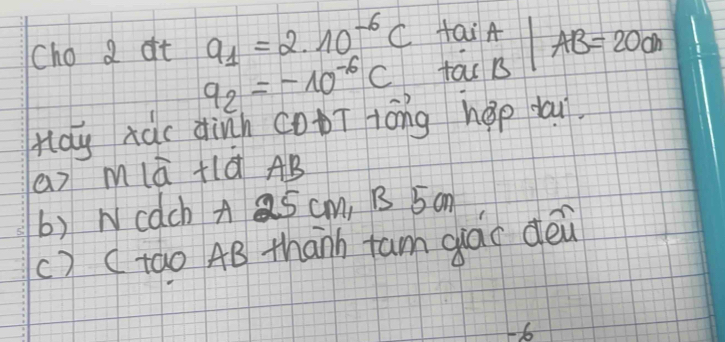 Cho 2 đt q₁ = 2.10⁻⁶ C tại A | AB = 20cm
q₂ = -10⁻⁶ C tại B
Hãy xác định CĐĐT tổng hợp tại.
a) M là tđ AB
b) N cách A 25 cm, B 5 cm
c) C tạo AB thành tam giác đều
-6